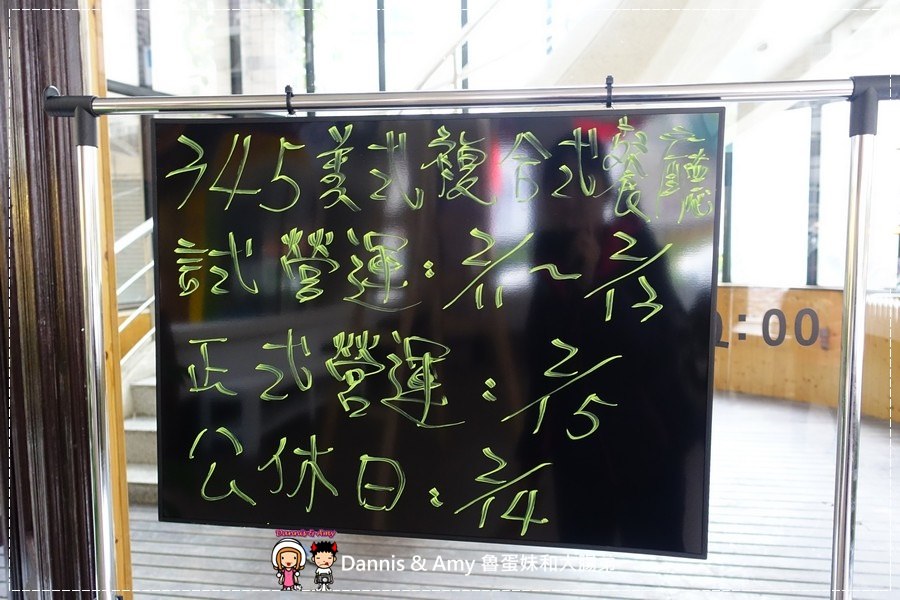 345美式複合式餐廳
試營運：2/11～2/13
正式營運：2/15
公休日：2/14
:00
Dannis & Amy
Dannis & Amy 魯蛋妹和大腸弟